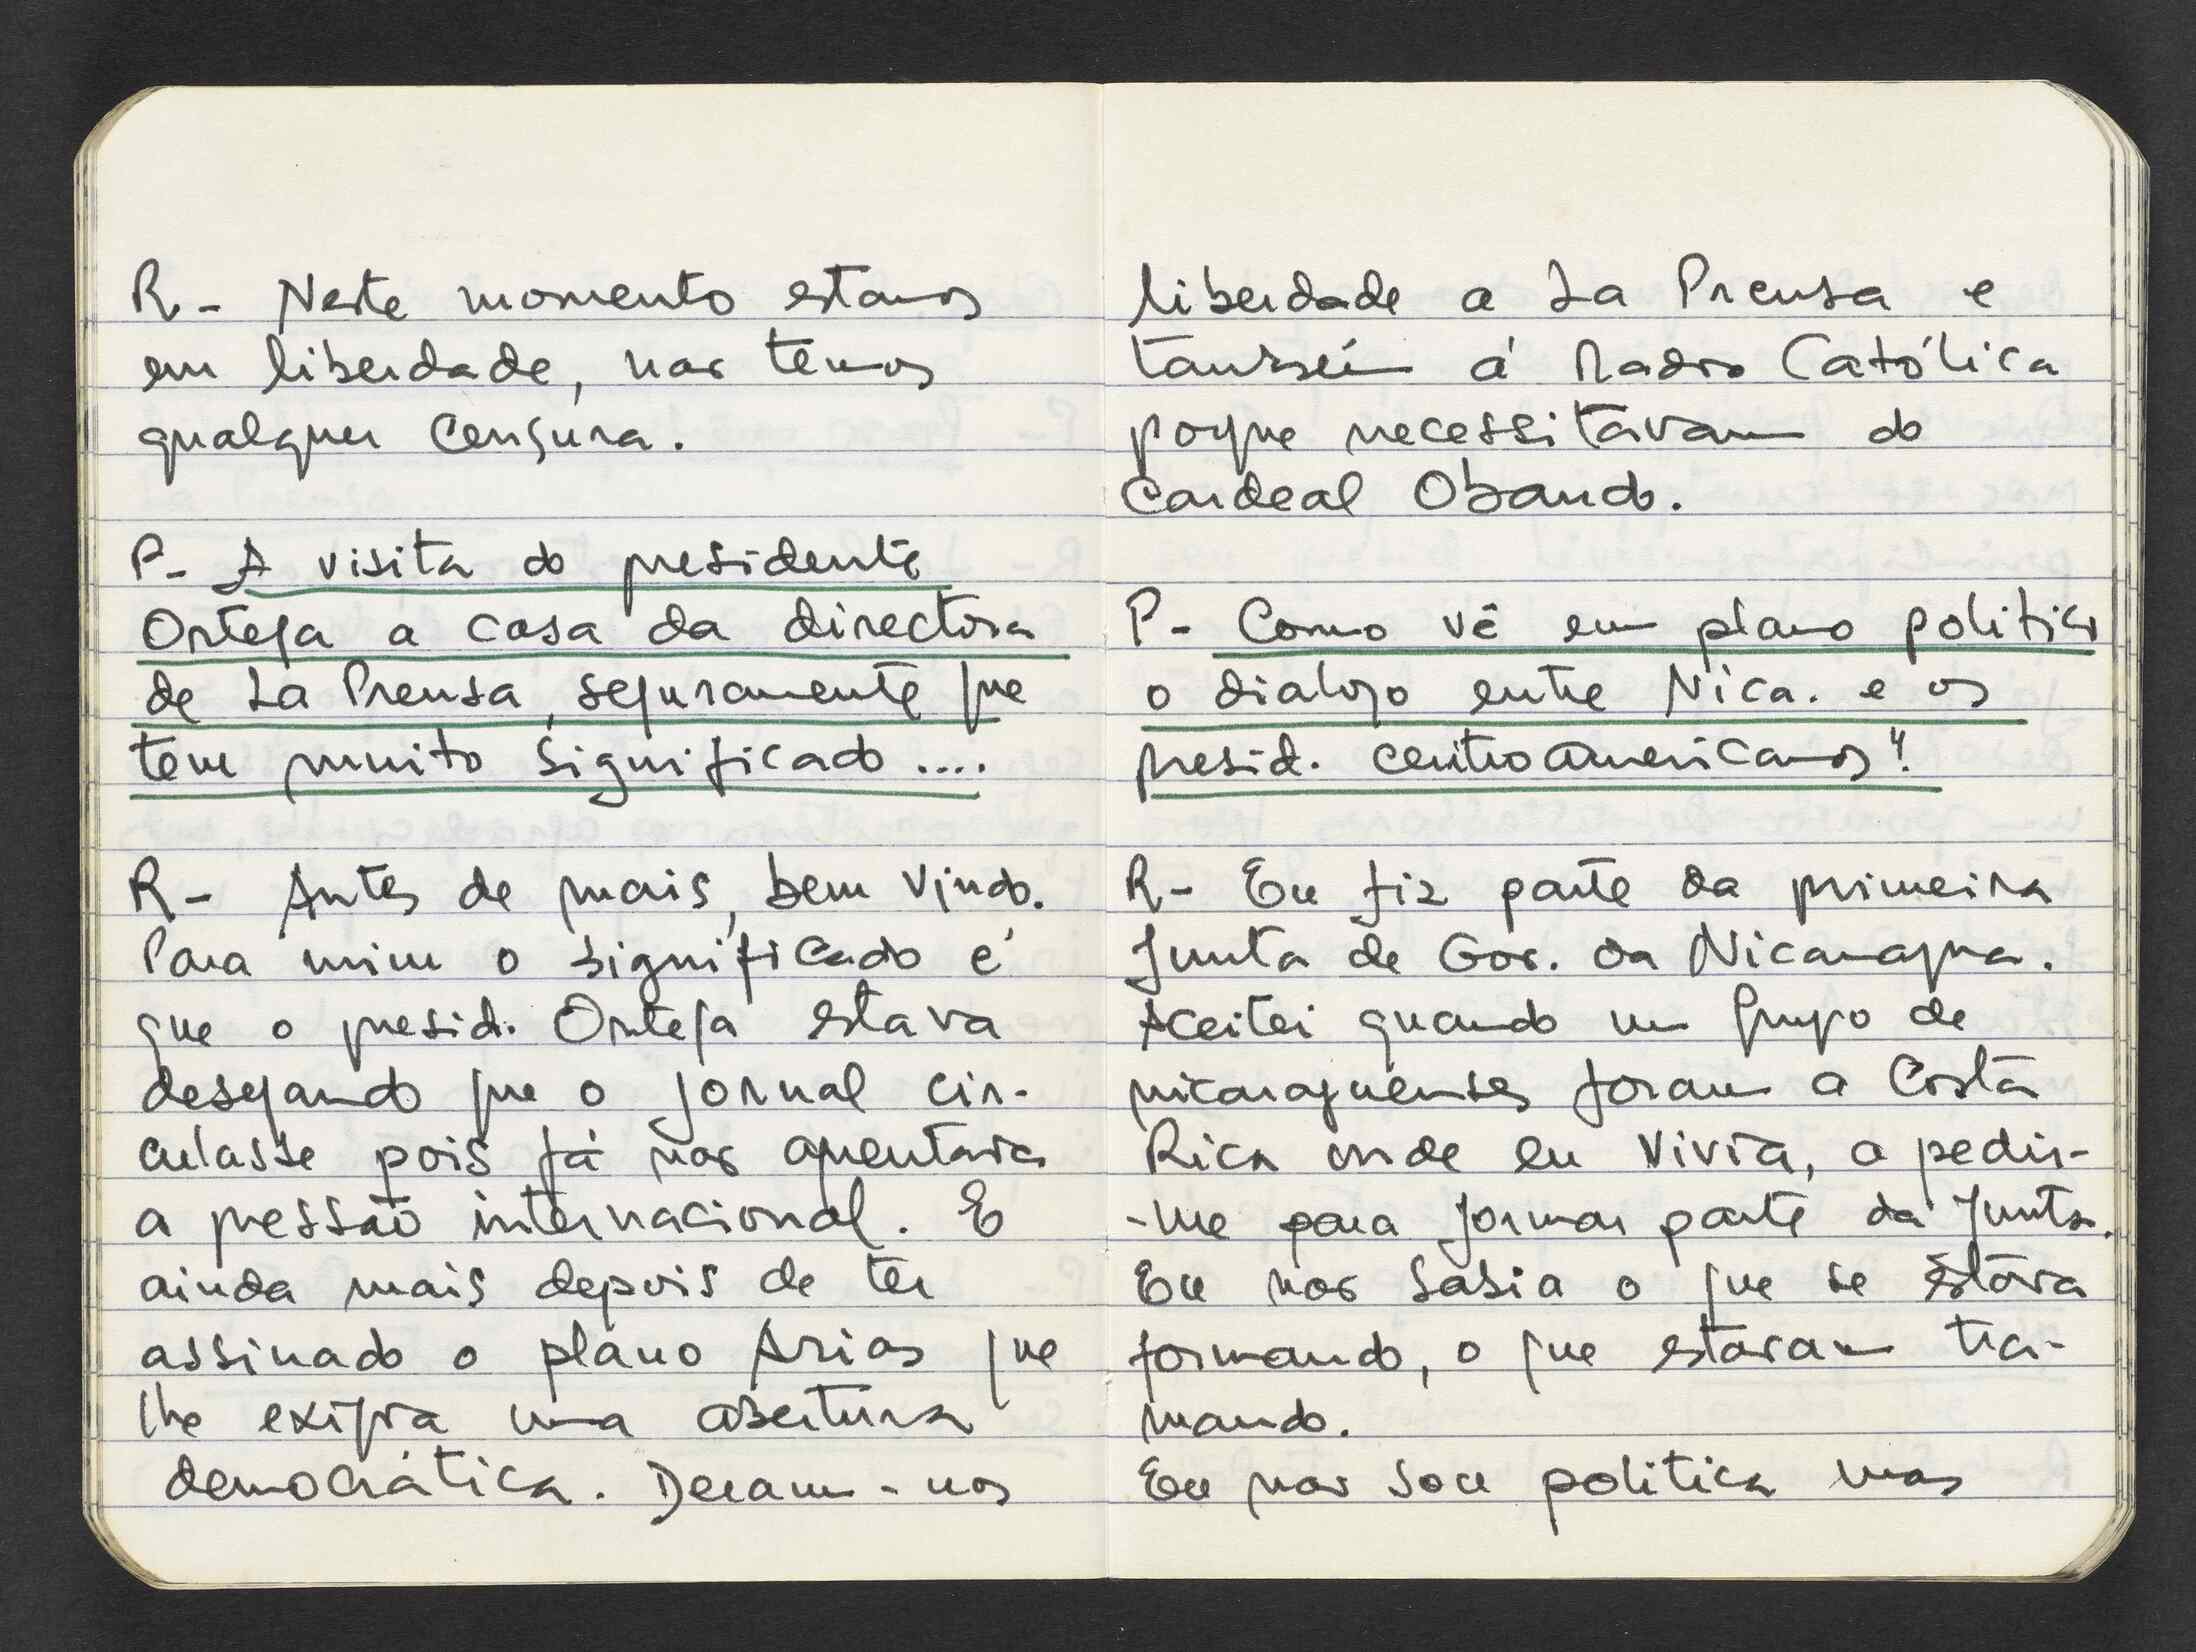 R- Neste momento estamos
em liberdade, nao temos
qualquer censura.
P- A visita do presidente
Ortega a casa da directora
de La Prensa, seguramente que
tem muito significado ....
R- Antes de mais, bem vindo.
Para mim o significado é
que o presid. Ortega estava
desejando que o jornal cir-
culasse pois já nao aguentava
a pressão internacional. E
ainda mais depois de ter
assinado o plano Arias que
lhe exigia uma abertura
democrática. Deram-nos
liberdade a La Prensa e
também á Radio Católica
porque necessitavam do
Cardeal Obando.
P- Como vê em plano politico
o dialogo entre Nica. e os
presid. centroamericanos?
R- Eu fiz parte da primeira
Junta de Gov. da Nicaragua.
Aceitei quando um grupo de
nicaraguenses foram a Costa
Rica onde eu vivia, a pedir-
-me para formar parte da Junta.
Eu nao sabia o que se estava
formando, o que estavam tra-
mando.
Eu nao sou politica mas